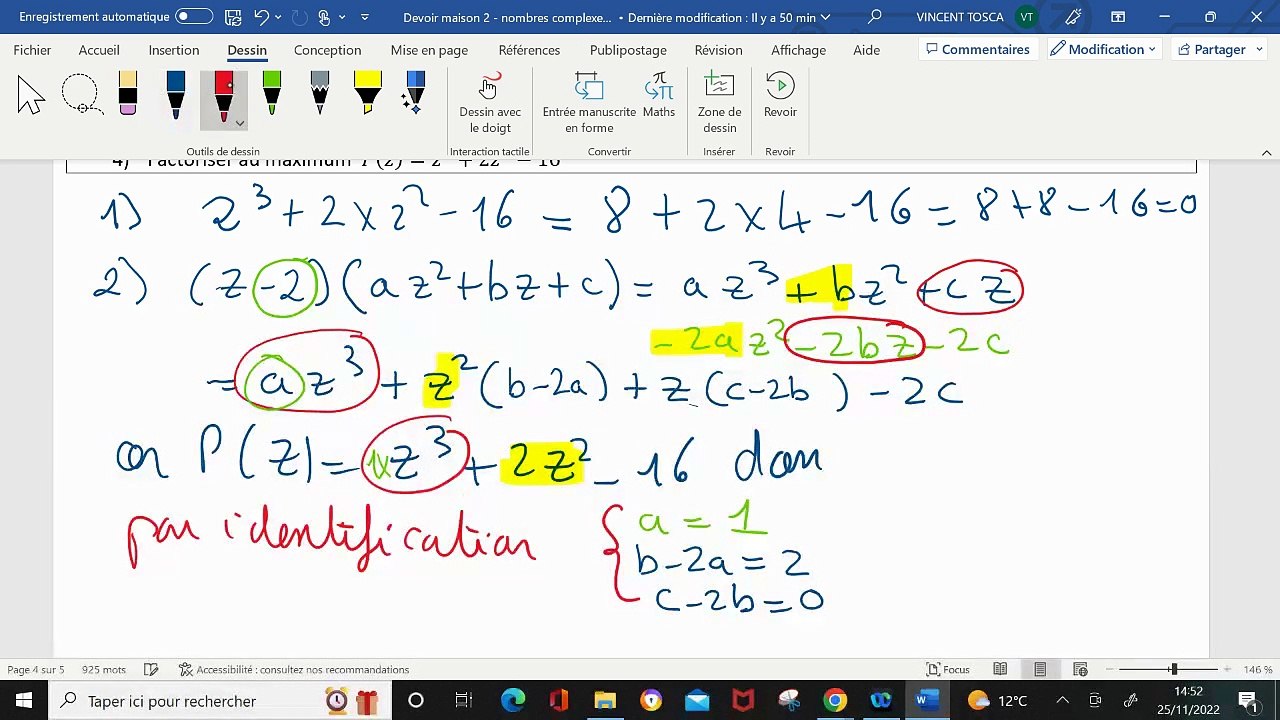 Enregistrement automatique
Devoir maison 2 - nombres complexe... • Dernière modification : Il y a 50 min
VINCENT TOSCA
VT
Fichier Accueil Insertion Dessin Conception Mise en page Références Publipostage Révision Affichage Aide
Commentaires Modification Partager
Dessin avec le doigt
Entrée manuscrite en forme
Maths
Zone de dessin
Revoir
Outils de dessin Interaction tactile Convertir Insérer Revoir
4) Factoriser au maximum
1) 2³ + 2 × 2² - 16 = 8 + 2 × 4 - 16 = 8 + 8 - 16 = 0
2) (z - 2)(az² + bz + c) = az³ + bz² + cz
- 2az² - 2bz - 2c
= az³ + z²(b - 2a) + z(c - 2b) - 2c
or P(z) = 1×z³ + 2z² - 16 donc
par identification { a = 1
b - 2a = 2
c - 2b = 0
Page 4 sur 5 925 mots Accessibilité : consultez nos recommandations Focus 146 %
Taper ici pour rechercher
12°C
14:52
25/11/2022